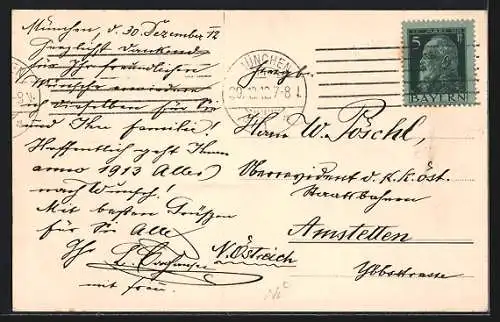 München, d. 30 Dezember 12
Herzlichst dankend
für Ihre freundlichen
Wünsche erwidere
ich dieselben für Sie
und Ihre Familie!
Hoffentlich geht Ihnen
anno 1913 Alles
nach Wunsch!
Mit besten Grüßen
für Sie Alle
Ihr
mit Frau.
MÜNCHEN
12.7-8
5
BAYERN
Herrn W. Pöschl,
Oberrevident d. K. K. öst.
Staatsbahnen
Amstetten
N. Östreich
Ybbsstrasse